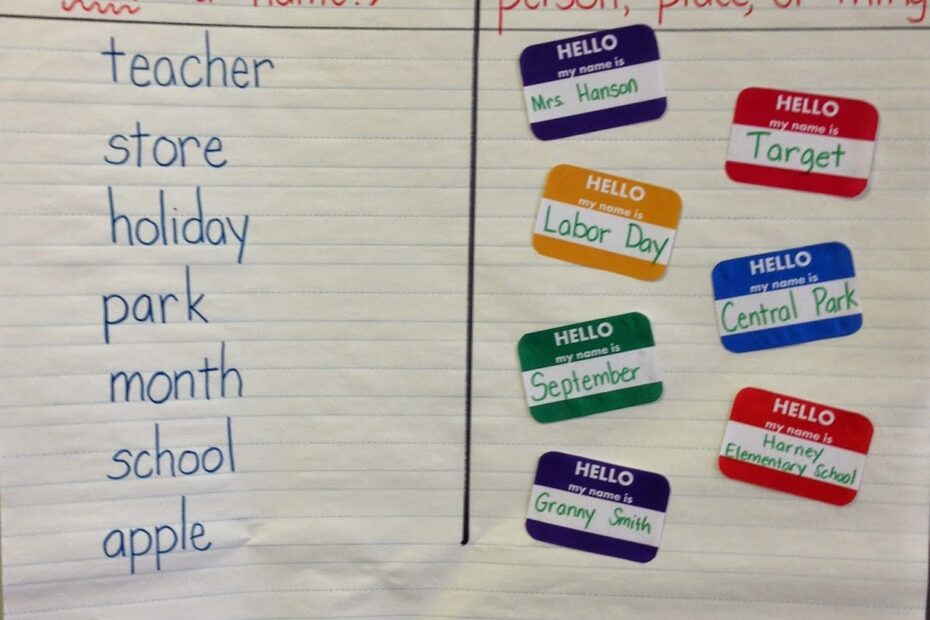 a name!)
person, place, or thing
teacher
store
holiday
park
month
school
apple
HELLO
my name is
Mrs. Hanson
HELLO
my name is
Target
HELLO
my name is
Labor Day
HELLO
my name is
Central Park
HELLO
my name is
September
HELLO
my name is
Harney
Elementary School
HELLO
my name is
Granny Smith